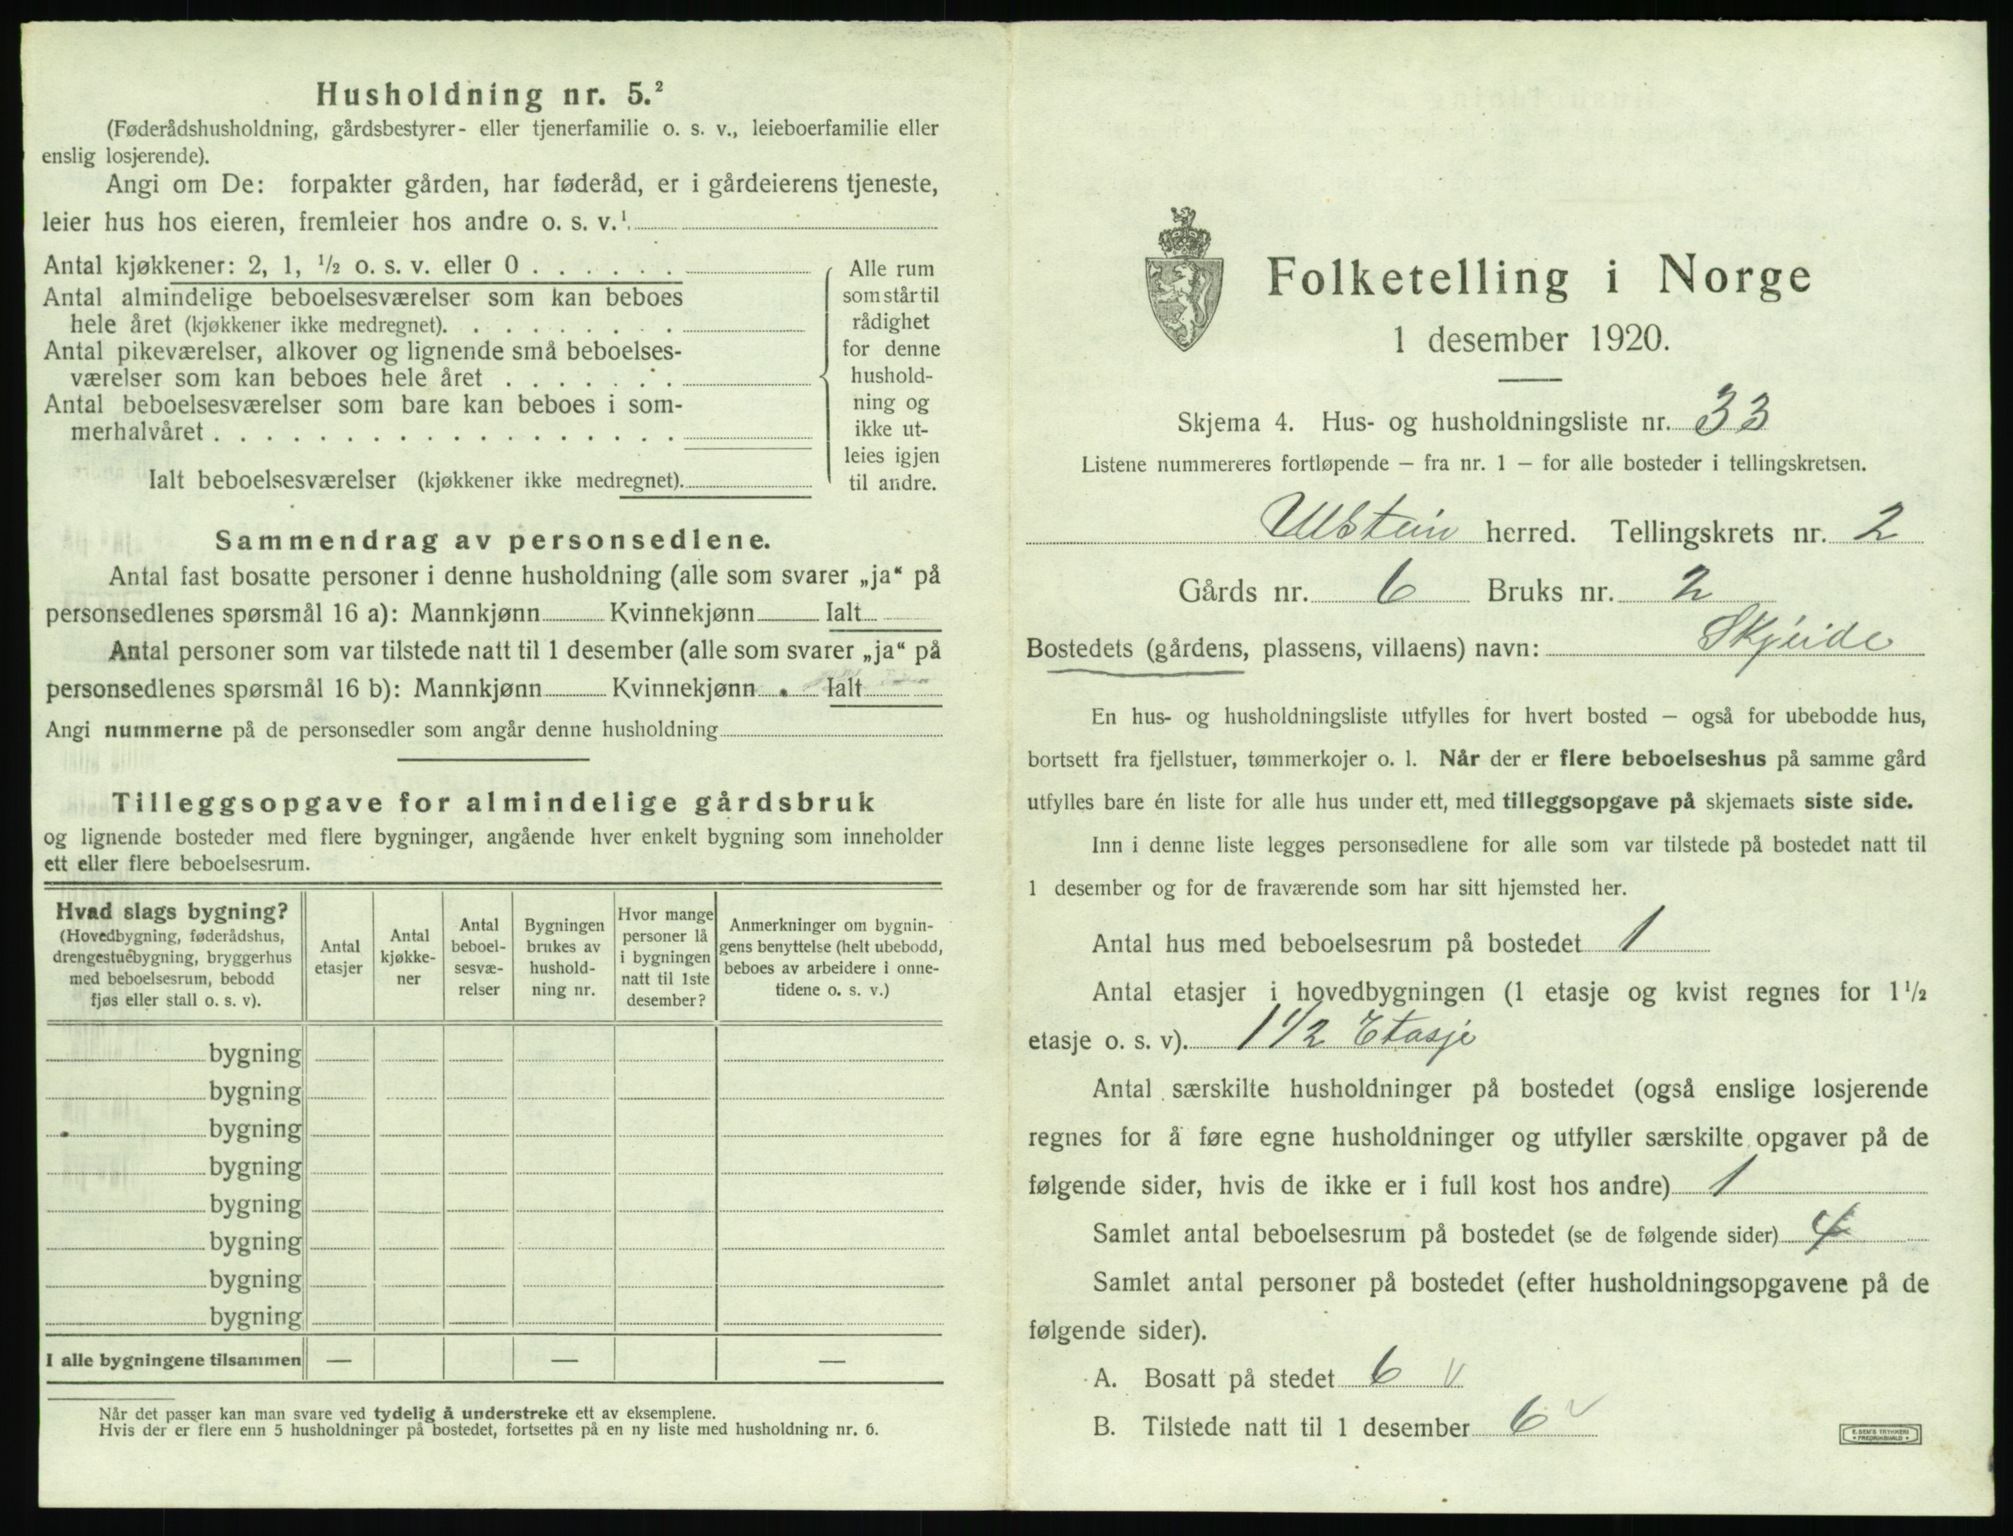 Husholdning nr. 5.²
(Føderådshusholdning, gårdsbestyrer- eller tjenerfamilie o. s. v., leieboerfamilie eller
enslig losjerende).
Angi om De: forpakter gården, har føderåd, er i gårdeierens tjeneste,
leier hus hos eieren, fremleier hos andre o. s. v.¹
Antal kjøkkener: 2, 1, ½ o. s. v. eller 0 . . . . . .
Antal almindelige beboelsesværelser som kan beboes
hele året (kjøkkener ikke medregnet). . . . . . . . .
Antal pikeværelser, alkover og lignende små beboelses-
værelser som kan beboes hele året . . . . . . .
Antal beboelsesværelser som bare kan beboes i som-
merhalvåret . . . . . . . . . . . . . . . . . .
Ialt beboelsesværelser (kjøkkener ikke medregnet).
Alle rum
som står til
rådighet
for denne
hushold-
ning og
ikke ut-
leies igjen
til andre.
Sammendrag av personsedlene.
Antal fast bosatte personer i denne husholdning (alle som svarer „ja“ på
personsedlenes spørsmål 16 a): Mannkjønn Kvinnekjønn Ialt
Antal personer som var tilstede natt til 1 desember (alle som svarer „ja“ på
personsedlenes spørsmål 16 b): Mannkjønn Kvinnekjønn Ialt
Angi nummerne på de personsedler som angår denne husholdning
Tilleggsopgave for almindelige gårdsbruk
og lignende bosteder med flere bygninger, angående hver enkelt bygning som inneholder
ett eller flere beboelsesrum.
Hvad slags bygning?
(Hovedbygning, føderådshus,
drengestuebygning, bryggerhus
med beboelsesrum, bebodd
fjøs eller stall o. s. v).
Antal
etasjer
Antal
kjøkke-
ner
Antal
beboel-
sesvæ-
relser
Bygningen
brukes av
hushold-
ning nr.
Hvor mange
personer lå
i bygningen
natt til 1ste
desember?
Anmerkninger om bygnin-
gens benyttelse (helt ubebodd,
beboes av arbeidere i onne-
tidene o. s. v.)
bygning
bygning
bygning
bygning
bygning
bygning
bygning
bygning
I alle bygningene tilsammen — — —
Når det passer kan man svare ved tydelig å understreke ett av eksemplene.
Hvis der er flere enn 5 husholdninger på bostedet, fortsettes på en ny liste med husholdning nr. 6.
Folketelling i Norge
1 desember 1920.
Skjema 4. Hus- og husholdningsliste nr. 33
Listene nummereres fortløpende – fra nr. 1 – for alle bosteder i tellingskretsen.
Ulstein herred. Tellingskrets nr. 2
Gårds nr. 6 Bruks nr. 2
Bostedets (gårdens, plassens, villaens) navn: Skjeide
En hus- og husholdningsliste utfylles for hvert bosted – også for ubebodde hus,
bortsett fra fjellstuer, tømmerkojer o. l. Når der er flere beboelseshus på samme gård
utfylles bare én liste for alle hus under ett, med tilleggsopgave på skjemaets siste side.
Inn i denne liste legges personsedlene for alle som var tilstede på bostedet natt til
1 desember og for de fraværende som har sitt hjemsted her.
Antal hus med beboelsesrum på bostedet 1
Antal etasjer i hovedbygningen (1 etasje og kvist regnes for 1½
etasje o. s. v). 1 1/2 Etasje
Antal særskilte husholdninger på bostedet (også enslige losjerende
regnes for å føre egne husholdninger og utfyller særskilte opgaver på de
følgende sider, hvis de ikke er i full kost hos andre) 1
Samlet antal beboelsesrum på bostedet (se de følgende sider) 4
Samlet antal personer på bostedet (efter husholdningsopgavene på de
følgende sider).
A. Bosatt på stedet 6 v
B. Tilstede natt til 1 desember 6 v
E. SEM'S TRYKKERI
FREDRIKSHALD